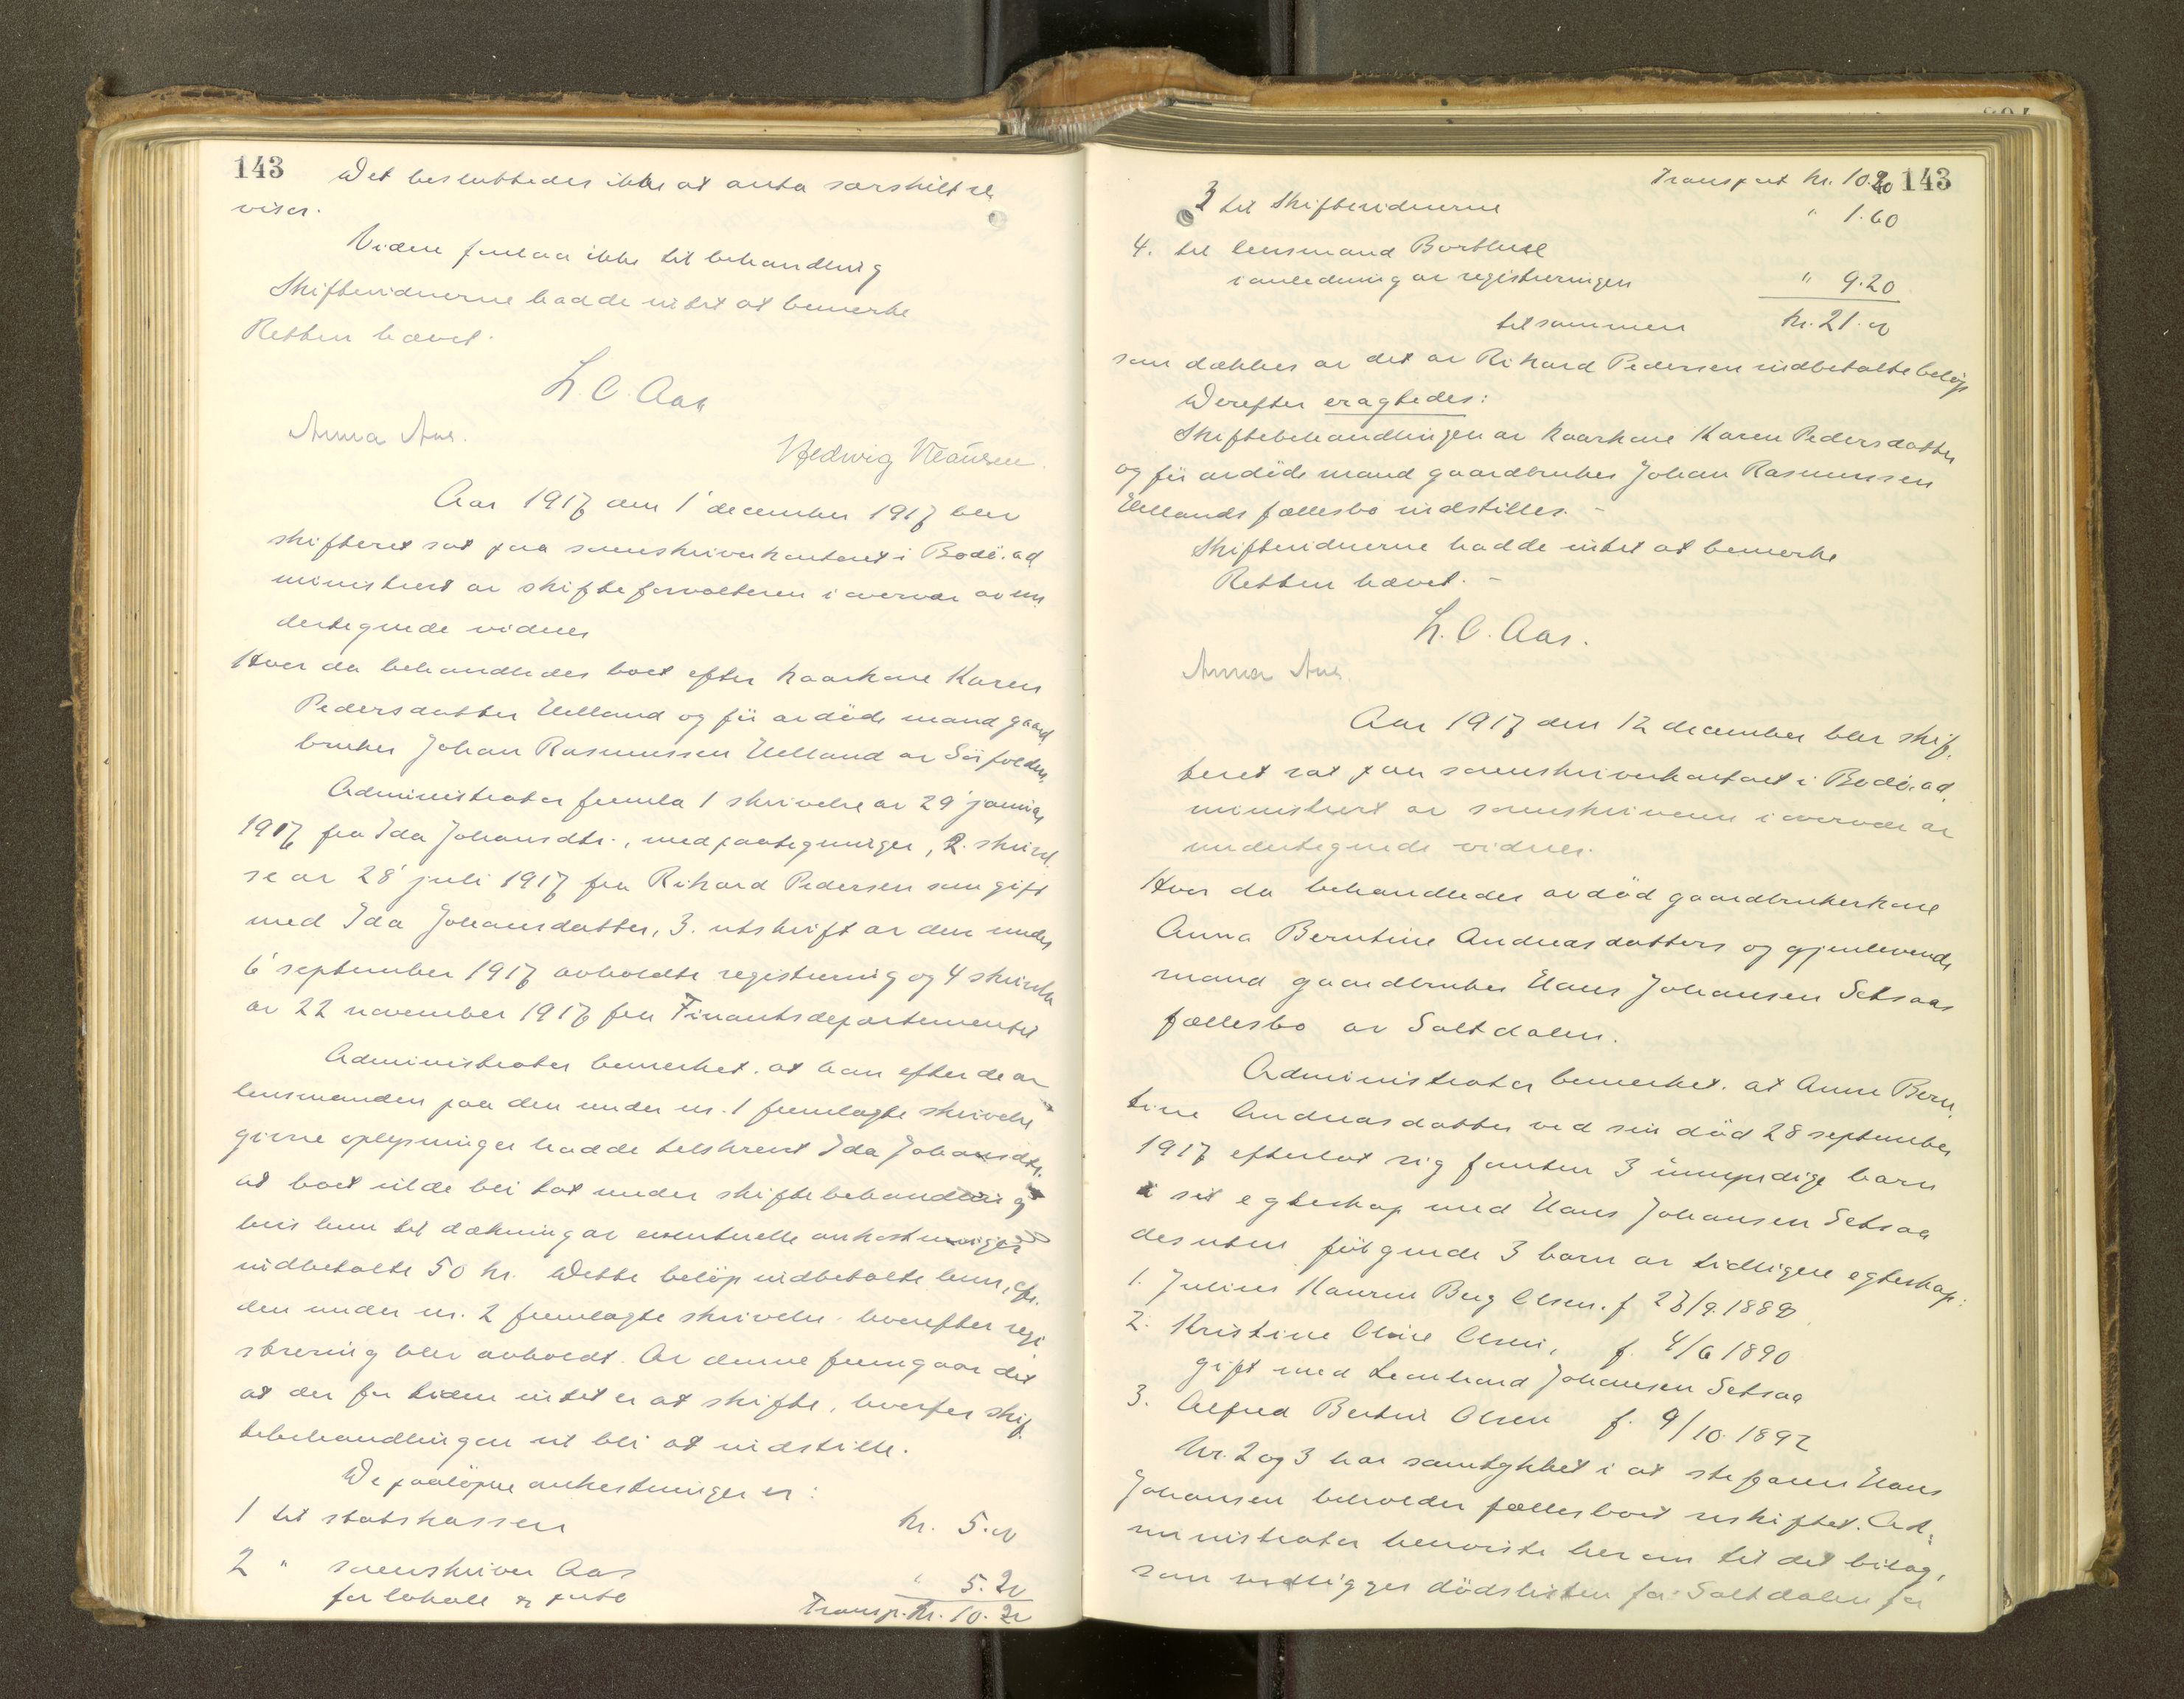 143
Det besluttedes ikke at anta særskilt re
visor.
Videre forelaa ikke til behandling
Skiftevidnerne hadde intet at bemerke
Retten hævet.
L. C. Aas
Anna Aas.
Hedwig Klausen.
Aar 1917 den 1' december 1917 blev
skifteret sat paa sorenskriverkontoret i Bodö, ad
ministrert av skifteforvalteren i overvær av un
dertegnede vidner
Hvor da behandledes boet efter kaarkone Karen
Pedersdatter Uelland og för avdöde mand gaard
bruker Johan Rasmussen Uelland av Sörfolden
Administrator fremla 1 skrivelse av 29' januar
1917 fra Ida Johansdtr., med paategninger, 2. skrivel
se av 28' juli 1917 fra Rikard Pedersen som gift
med Ida Johansdatter, 3. utskrift av den under
6' september 1917 avholdte registrering og 4 skrivelse
av 22 november 1917 fra Finantsdepartementet
Administrator bemerket. at han efter de av
lensmanden paa den under nr. 1 fremlagte skrivelse
givne oplysninger hadde tilskrevet Ida Johansdtr.
at boet vilde bli tat under skiftebehandling
hvis hun til dækning av eventuelle omkostninger
indbetalte 50 kr. Dette belöp indbetalte hun, cfr.
den under nr. 2 fremlagte skrivelse. hvorefter regi
strering blev avholdt. Av denne fremgaar det
at der for tiden intet er at skifte, hvorfor skif
tebehandlingen vil bli at indstille.
De paalöpne omkostninger er:
1 til statskassen kr. 5.00
2 " sorenskriver Aas
for lokale og porto " 5.20
Transp. kr. 10.20
Transport kr. 10.20 143
3 til Skiftevidnerne " 1.60
4. til lensmand
i anledning av registreringen " 9.20
tilsammen kr. 21.00
som dækkes av det av Rikard Pedersen indbetalte belöp
Derefter eragtedes:
Skiftebehandlingen av kaarkone Karen Pedersdatter
og för avdöde mand gaardbruker Johan Rasmussen
Uellands fællesbo indstilles. -
Skiftevidnerne hadde intet at bemerke
Retten hævet. -
L. C. Aas.
Anna Aas.
Aar 1917 den 12 december blev skif
teret sat paa sorenskriverkontoret i Bodö, ad
ministrert av sorenskriveren i overvær av
undertegnede vidner.
Hvor da behandledes avdöd gaardbrukerkone
Anna Berntine Andreasdatters og gjenlevende
mand gaardbruker Hans Johansen Setsaas
fællesbo av Saltdalen.
Administrator bemerket. at Anna Bern
tine Andreasdatter ved sin död 28 september
1917 efterlot sig foruten 3 umyndige barn
i sit egteskap med Hans Johansen Setsaa
desuten fölgende 3 barn av tidligere egteskap:
1. Julius Berg Olsen. f 23/9.1888
2. Kristine Olsen, f. 4/6 1890
gift med Leonhard Johansen Setsaa
3. Alfred Bertin Olsen f. 9/10.1892
Nr. 2 og 3 har samtykket i at stefaren Hans
Johansen beholder fællesboet uskiftet. Ad-
ministrator henviste herom til det bilag,
som vedligger dödslisten for Saltdalen for